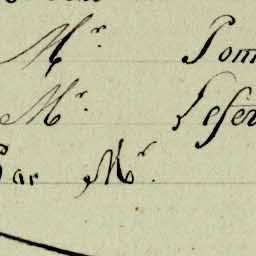 Mr. Pom
Mr. Lefer
Par Mr.